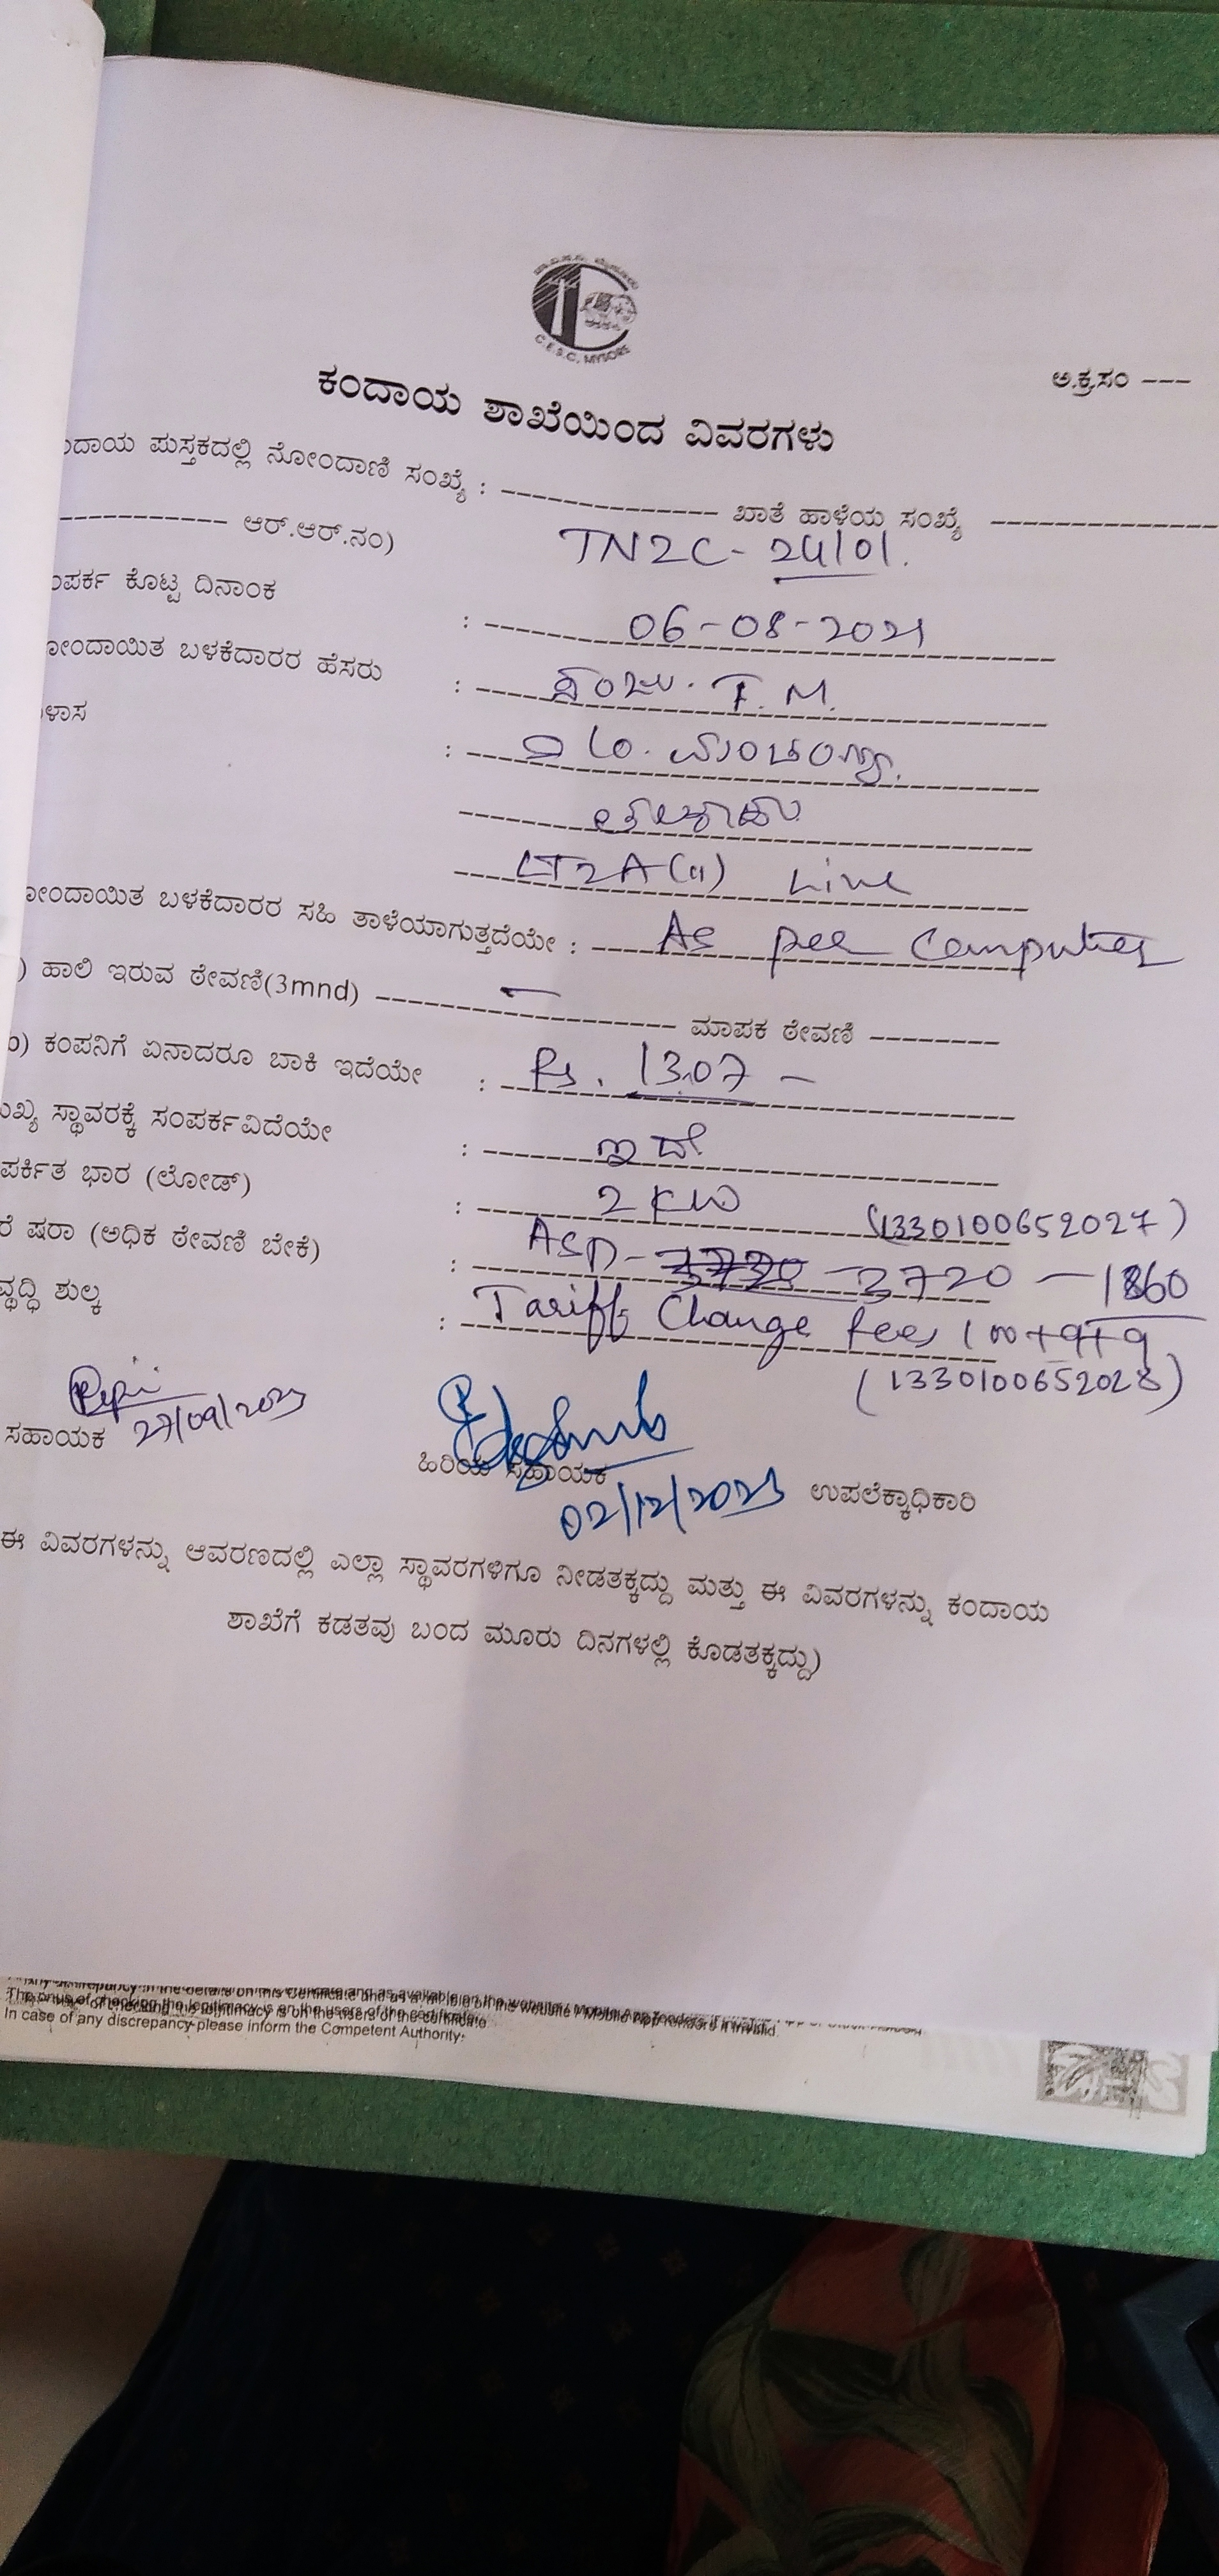 C.E.S.C. MYSORE
ಅ.ಕ್ರ.ಸಂ ---
ಕಂದಾಯ ಶಾಖೆಯಿಂದ ವಿವರಗಳು
ದಾಯ ಪುಸ್ತಕದಲ್ಲಿ ನೋಂದಾಣಿ ಸಂಖ್ಯೆ : ---------------- ಖಾತೆ ಹಾಳೆಯ ಸಂಖ್ಯೆ ----------------
------------ ಆರ್.ಆರ್.ನಂ) TN2C- 24101.
ಂಪರ್ಕ ಕೊಟ್ಟ ದಿನಾಂಕ : 06-08-2021
ೋಂದಾಯಿತ ಬಳಕೆದಾರರ ಹೆಸರು : T. M.
ಳಾಸ :
LT2A(a) Line
ೋಂದಾಯಿತ ಬಳಕೆದಾರರ ಸಹಿ ತಾಳೆಯಾಗುತ್ತದೆಯೇ : As per Computer
) ಹಾಲಿ ಇರುವ ಠೇವಣಿ(3mnd) ---- — ---- ಮಾಪಕ ಠೇವಣಿ --------
b) ಕಂಪನಿಗೆ ಏನಾದರೂ ಬಾಕಿ ಇದೆಯೇ : Rs. 1307 —
ಖ್ಯ ಸ್ಥಾವರಕ್ಕೆ ಸಂಪರ್ಕವಿದೆಯೇ : ಇದೆ
ಪರ್ಕಿತ ಭಾರ (ಲೋಡ್) : 2 KW (1330100652027)
ರೆ ಷರಾ (ಅಧಿಕ ಠೇವಣಿ ಬೇಕೆ) : ASD- 3720 - 3720 — 1860
ವೃದ್ಧಿ ಶುಲ್ಕ : Tariff Change fees 100+9+9
(1330100652028)
27/09/2023
ಸಹಾಯಕ
ಹಿರಿಯ ಸಹಾಯಕ
02/12/2023 ಉಪಲೆಕ್ಕಾಧಿಕಾರಿ
ಈ ವಿವರಗಳನ್ನು ಆವರಣದಲ್ಲಿ ಎಲ್ಲಾ ಸ್ಥಾವರಗಳಿಗೂ ನೀಡತಕ್ಕದ್ದು ಮತ್ತು ಈ ವಿವರಗಳನ್ನು ಕಂದಾಯ
ಶಾಖೆಗೆ ಕಡತವು ಬಂದ ಮೂರು ದಿನಗಳಲ್ಲಿ ಕೊಡತಕ್ಕದ್ದು)
The onus of checking the legitimacy is on the users of the certificate
In case of any discrepancy please inform the Competent Authority.